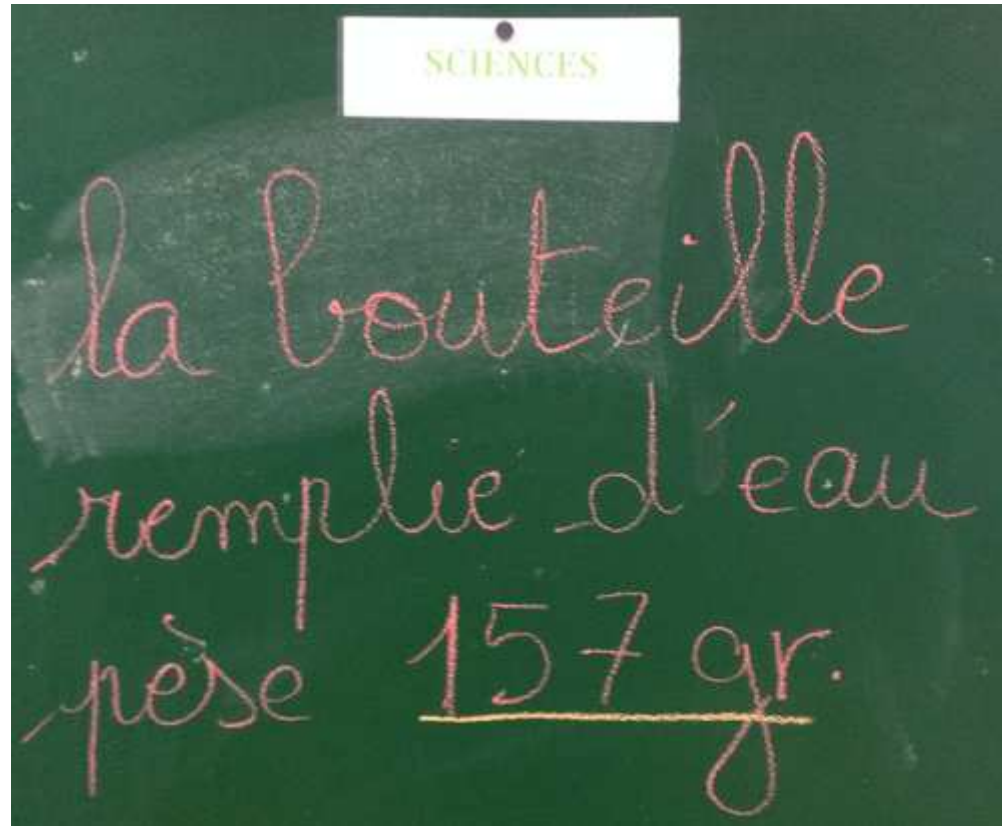 SCIENCES
la bouteille
remplie d'eau
pèse 157 gr.